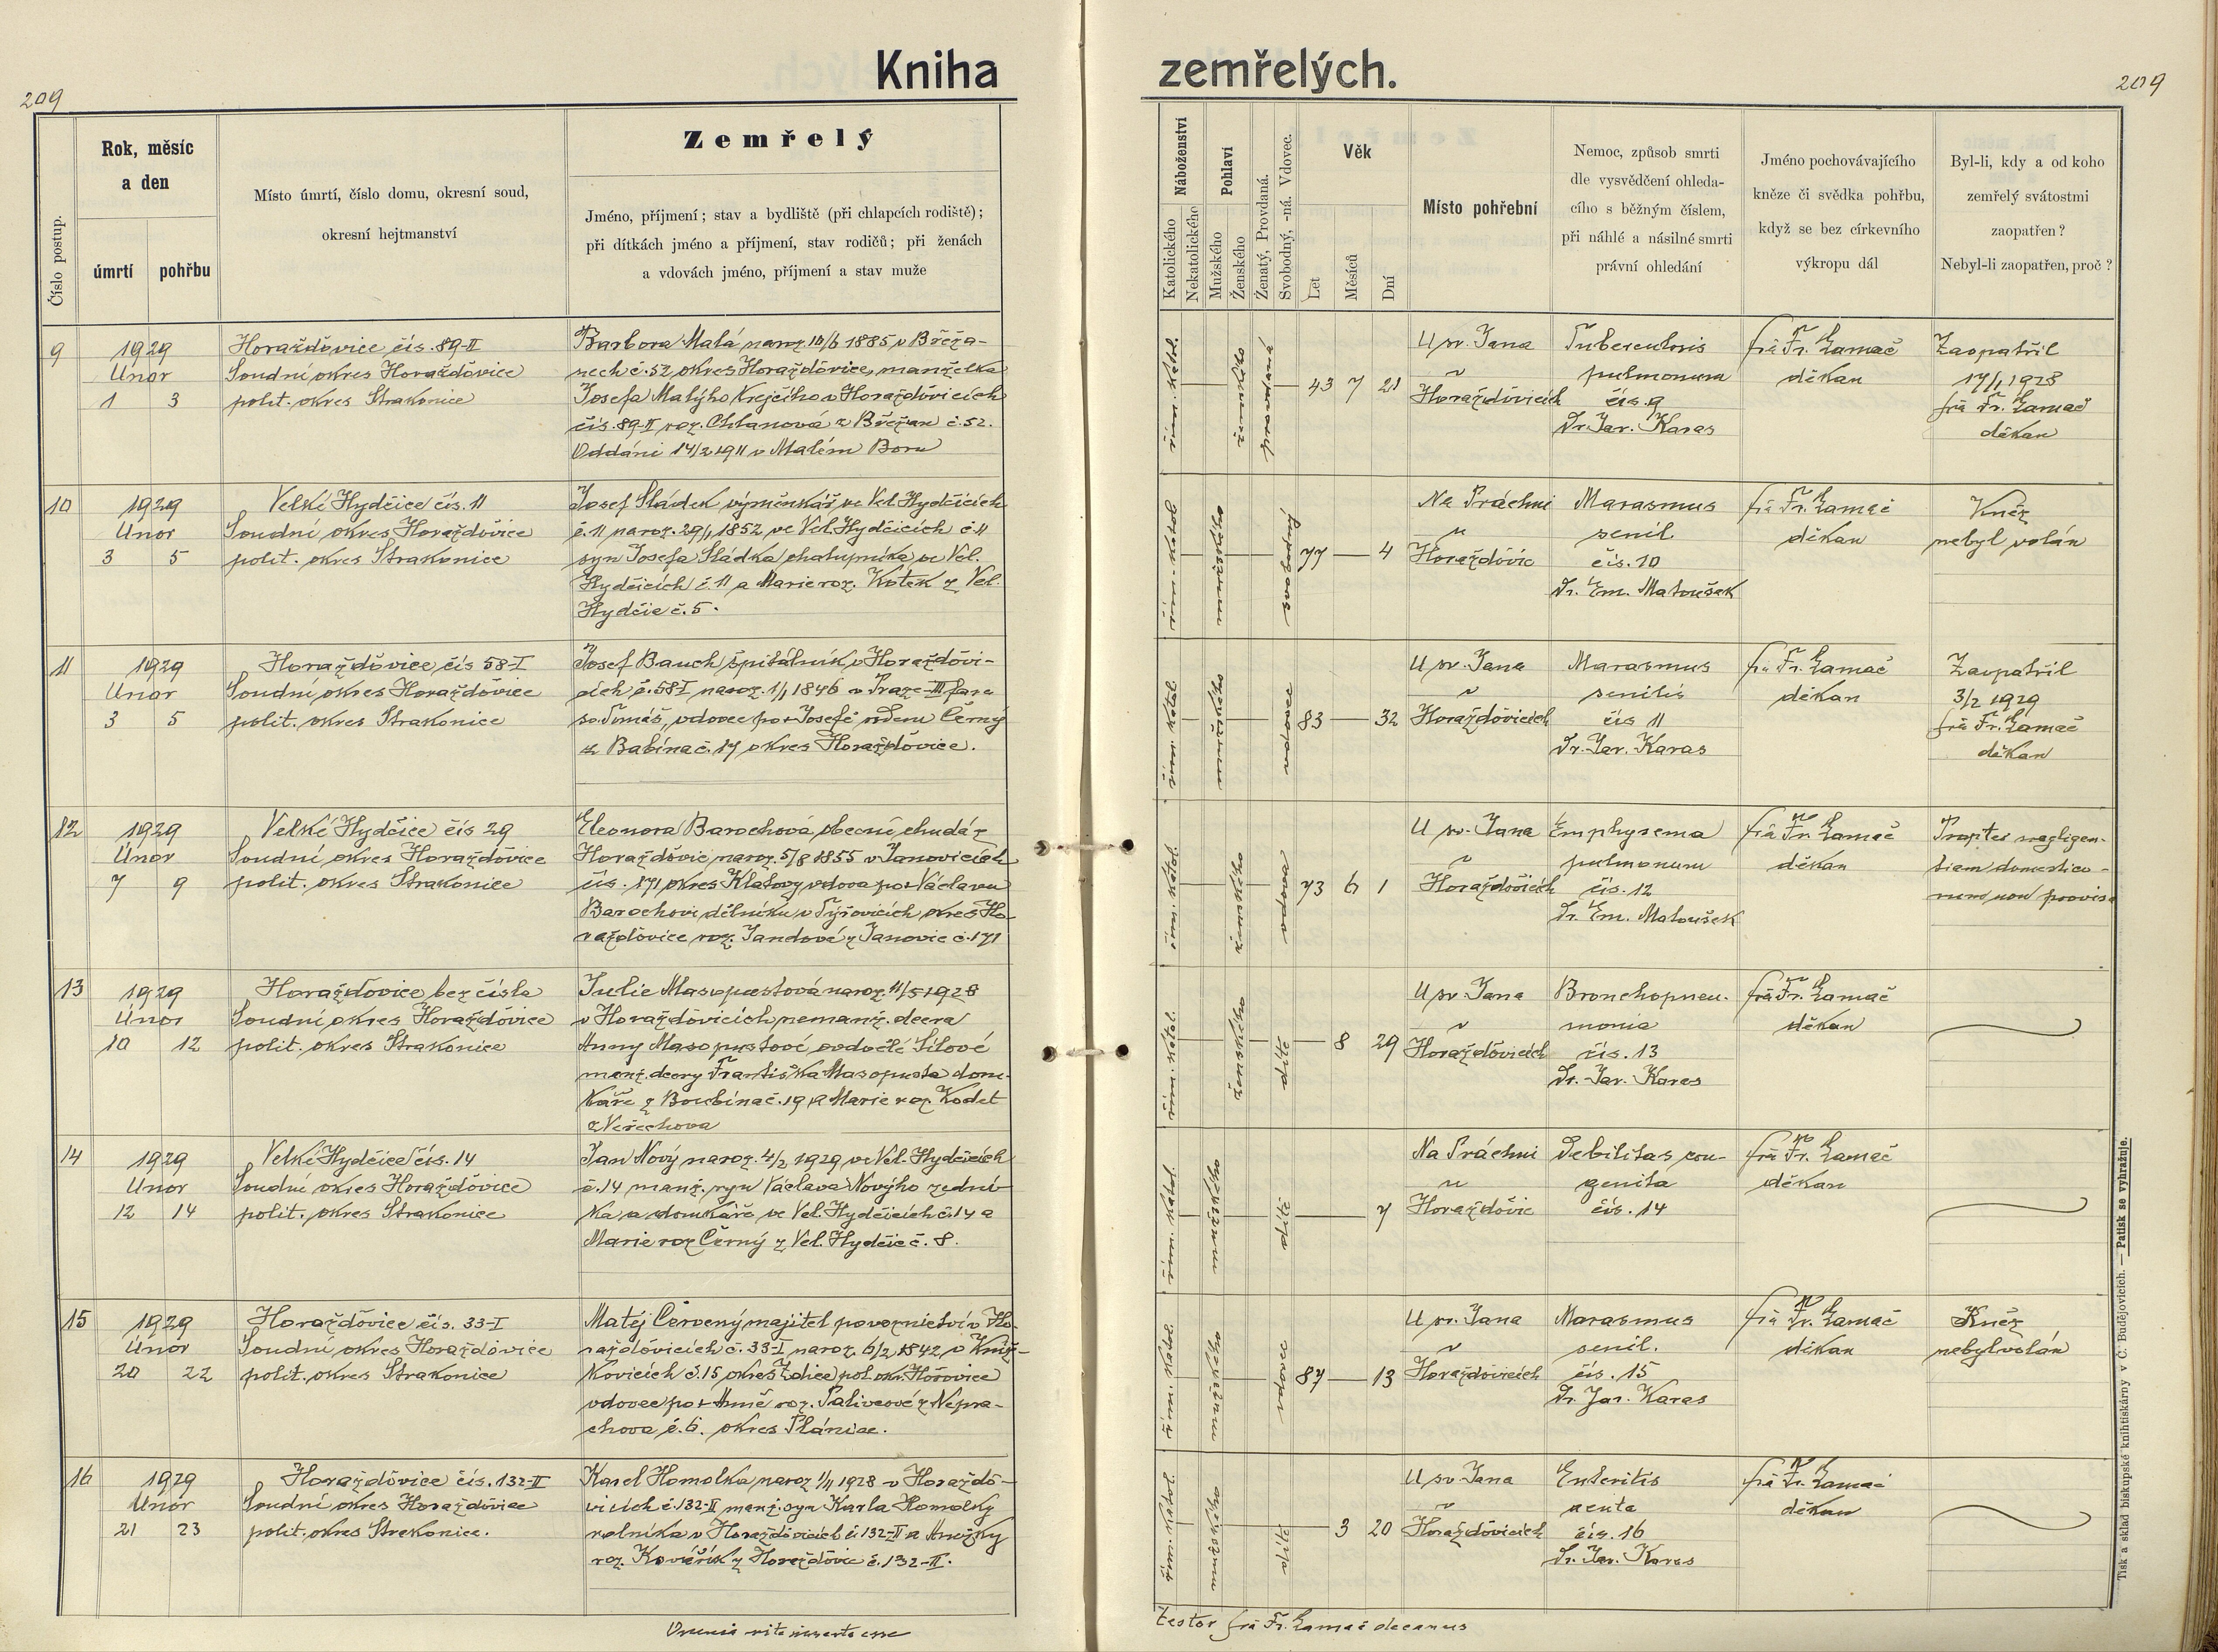 209
Kniha
zemřelých.
209
Číslo postup.
Rok, měsíc
a den
úmrtí
pohřbu
Místo úmrtí, číslo domu, okresní soud,
okresní hejtmanství
Zemřelý
Jméno, příjmení; stav a bydliště (při chlapcích rodiště);
při dítkách jméno a příjmení, stav rodičů; při ženách
a vdovách jméno, příjmení a stav muže
Náboženství
Katolického
Nekatolického
Pohlaví
Mužského
Ženského
Ženatý, Provdaná.
Svobodný, -ná. Vdovec.
Věk
Let
Měsíců
Dní
Místo pohřební
Nemoc, způsob smrti
dle vysvědčení ohleda-
cího s běžným číslem,
při náhlé a násilné smrti
právní ohledání
Jméno pochovávajícího
kněze či svědka pohřbu,
když se bez církevního
výkropu dál
Byl-li, kdy a od koho
zemřelý svátostmi
zaopatřen?
Nebyl-li zaopatřen, proč?
9
1929
Únor
1 3
Horažďovice čís. 89-II
Soudní okres Horažďovice
polit. okres Strakonice
Barbora Malá naroz. 10/6 1885 v Břeža-
nech č. 52 okres Horažďovice, manželka
Josefa Malýho krejčího v Horažďovicích
čís. 89-II roz. Chlanová z Břežan č. 52.
Oddáni 14/2 1911 v Malém Boru
řím. katol.
ženského
provdaná
43 7 21
U sv. Jana
v
Horažďovicích
Tuberculosis
pulmonum
čís. 9
Dr. Jar. Karas
frá Fr. Lamač
děkan
Zaopatřil
17/1 1928
frá Fr. Lamač
děkan
10
1929
Únor
3 5
Velké Hydčice čís. 11
Soudní okres Horažďovice
polit. okres Strakonice
Josef Sládek výměnkář ve Vel. Hydčicích
č. 11 naroz. 29/1 1852 ve Vel. Hydčicích č. 11
syn Josefa Sládka chalupníka ve Vel.
Hydčicích č. 11 a Marie roz. Kotek z Vel.
Hydčic č. 5.
řím. katol.
mužského
svobodný
77 4
Na Práchni
u
Horažďovic
Marasmus
senil
čís. 10
Dr. Em. Matoušek
frá Fr. Lamač
děkan
Kněz
nebyl volán
11
1929
Únor
3 5
Horažďovice čís 58-I
Soudní okres Horažďovice
polit. okres Strakonice
Josef Bauch špitálník v Horažďovi-
cích č. 58-I naroz. 1/1 1846 v Praze-III fara
sv. Tomáš, vdovec po + Josefě rozené Černý
z Babína č. 17 okres Horažďovice.
řím. katol.
mužského
vdovec
83 32
U sv. Jana
v
Horažďovicích
Marasmus
senilis
čís 11
Dr. Jar. Karas
frá Fr. Lamač
děkan
Zaopatřil
3/2 1929
frá Fr. Lamač
děkan
12
1929
Únor
7 9
Velké Hydčice čís 29
Soudní okres Horažďovice
polit. okres Strakonice
Eleonora Barochová obecní chudá z
Horažďovic naroz. 5/8 1855 v Janovicích
čís. 171 okres Klatovy vdova po + Václavu
Barochovi dělníku v Týřovicích okres Ho-
ražďovice roz. Jandové z Janovic č. 171
řím. katol.
ženského
vdova
73 6 1
U sv. Jana
v
Horažďovicích
Emphysema
pulmonum
čís. 12
Dr. Em. Matoušek
frá Fr. Lamač
děkan
Propter negligen-
tiam domestico-
rum non provisa
13
1929
Únor
10 12
Horažďovice bez čísla
Soudní okres Horažďovice
polit. okres Strakonice
Julie Masopustová naroz. 11/5 1928
v Horažďovicích nemanž. dcera
Anny Masopustové
manž. dcery Františka Masopusta dom-
káře z Boubína č. 19 a Marie roz. Kodet
z Neřechova
řím. katol.
ženského
dítě
8 29
U sv. Jana
v
Horažďovicích
Bronchopneu-
monia
čís. 13
Dr. Jar. Karas
frá Fr. Lamač
děkan
14
1929
Únor
12 14
Velké Hydčice čís. 14
Soudní okres Horažďovice
polit. okres Strakonice
Jan Nový naroz. 4/2 1929 ve Vel. Hydčicích
č. 14 manž. syn Václava Novýho zední-
ka a domkáře ve Vel. Hydčicích č. 14 a
Marie roz Černý z Vel. Hydčic č. 8.
řím. katol.
mužského
dítě
7
Na Práchni
u
Horažďovic
Debilitas con-
genita
čís. 14
frá Fr. Lamač
děkan
15
1929
Únor
20 22
Horažďovice čís. 33-I
Soudní okres Horažďovice
polit. okres Strakonice
Matěj Červený majitel povoznictví v Ho-
ražďovicích č. 33-I naroz. 6/2 1842 v Kníž-
kovicích č. 15 okres Zdice pol. okr. Hořovice
vdovec po + Anně roz. Palivcové z Nepra-
chova č. 6. okres Plánice.
řím. katol.
mužského
vdovec
87 13
U sv. Jana
v
Horažďovicích
Marasmus
senil.
čís. 15
Dr. Jar. Karas
frá Fr. Lamač
děkan
Kněz
nebyl volán
16
1929
Únor
21 23
Horažďovice čís. 132-II
Soudní okres Horažďovice
polit. okres Strakonice.
Karel Homolka naroz 1/11 1928 v Horažďo-
vicích č. 132-II manž. syn Karla Homolky
rolníka v Horažďovicích č. 132-II a Anežky
roz. Kovářík z Horažďovic č. 132-II.
řím. katol.
mužského
dítě
3 20
U sv. Jana
v
Horažďovicích
Enteritis
acuta
čís. 16
Dr. Jar. Karas
frá Fr. Lamač
děkan
Omnia rite inserta esse
testor frá Fr. Lamač decanus
Tisk a sklad biskupské knihtiskárny v Č. Budějovicích. — Patisk se vyhražuje.